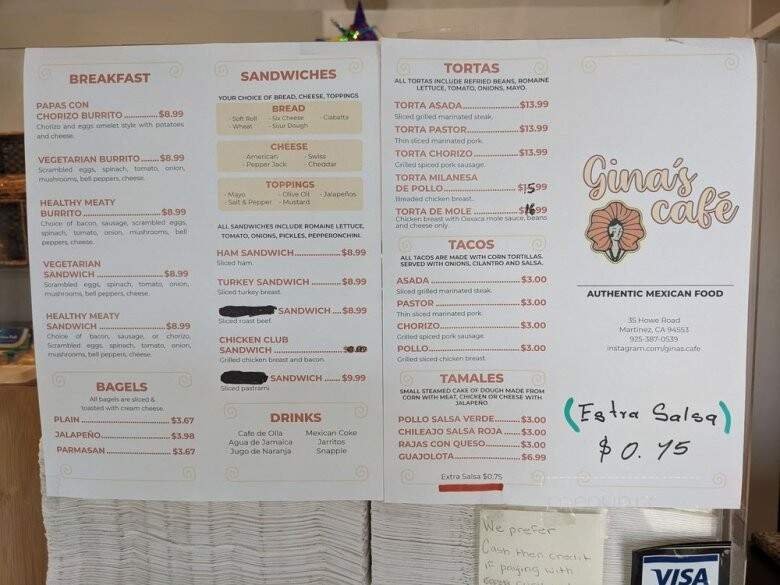 BREAKFAST
PAPAS CON
CHORIZO BURRITO ........ $8.99
Chorizo and eggs omelet style with potatoes
and cheese.
VEGETARIAN BURRITO ...... $8.99
Scrambled eggs, spinach, tomato, onion,
mushrooms, bell peppers, cheese.
HEALTHY MEATY
BURRITO ........ $8.99
Choice of bacon, sausage, scrambled eggs,
spinach, tomato, onion, mushrooms, bell
peppers, cheese.
VEGETARIAN
SANDWICH ........ $8.99
Scrambled eggs, spinach, tomato, onion,
mushrooms, bell peppers, cheese.
HEALTHY MEATY
SANDWICH ........ $8.99
Choice of bacon, sausage, or chorizo,
Scrambled eggs, spinach, tomato, onion,
mushrooms, bell peppers, cheese.
BAGELS
All bagels are sliced &
toasted with cream cheese.
PLAIN ........ $3.67
JALAPEÑO ........ $3.98
PARMASAN ........ $3.67
SANDWICHES
YOUR CHOICE OF BREAD, CHEESE, TOPPINGS
BREAD
- Soft Roll - Six Cheese - Ciabatta
- Wheat - Sour Dough
CHEESE
- American - Swiss
- Pepper Jack - Cheddar
TOPPINGS
- Mayo - Olive Oil - Jalapeños
- Salt & Pepper - Mustard
ALL SANDWICHES INCLUDE ROMAINE LETTUCE,
TOMATO, ONIONS, PICKLES, PEPPERONCHINI.
HAM SANDWICH ........ $8.99
Sliced ham.
TURKEY SANDWICH ........ $8.99
Sliced turkey breast.
SANDWICH .... $8.99
Sliced roast beef.
CHICKEN CLUB
SANDWICH ........
Grilled chicken breast and bacon.
SANDWICH ..... $9.99
Sliced pastrami.
DRINKS
Cafe de Olla Mexican Coke
Agua de Jamaica Jarritos
Jugo de Naranja Snapple
TORTAS
ALL TORTAS INCLUDE REFRIED BEANS, ROMAINE
LETTUCE, TOMATO, ONIONS, MAYO.
TORTA ASADA ........ $13.99
Sliced grilled marinated steak.
TORTA PASTOR ........ $13.99
Thin sliced marinated pork.
TORTA CHORIZO ........ $13.99
Grilled spiced pork sausage.
TORTA MILANESA
DE POLLO ........ $15.99
Breaded chicken breast.
TORTA DE MOLE ........ $16.99
Chicken breast with Oaxaca mole sauce, beans
and cheese only.
TACOS
ALL TACOS ARE MADE WITH CORN TORTILLAS.
SERVED WITH ONIONS, CILANTRO AND SALSA.
ASADA ........ $3.00
Sliced grilled marinated steak.
PASTOR ........ $3.00
Thin sliced marinated pork.
CHORIZO ........ $3.00
Grilled spiced pork sausage.
POLLO ........ $3.00
Grilled sliced chicken breast.
TAMALES
SMALL STEAMED CAKE OF DOUGH MADE FROM
CORN WITH MEAT, CHICKEN OR CHEESE WITH
JALAPEÑO
POLLO SALSA VERDE ........ $3.00
CHILEAJO SALSA ROJA ..... $3.00
RAJAS CON QUESO ........ $3.00
GUAJOLOTA ........ $6.99
Extra Salsa $0.75
Gina's
café
AUTHENTIC MEXICAN FOOD
35 Howe Road
Martinez, CA 94553
925-387-0539
instagram.com/ginas.cafe
(Estra Salsa)
$ 0.75
We prefer
Cash then credit
if paying with
VISA